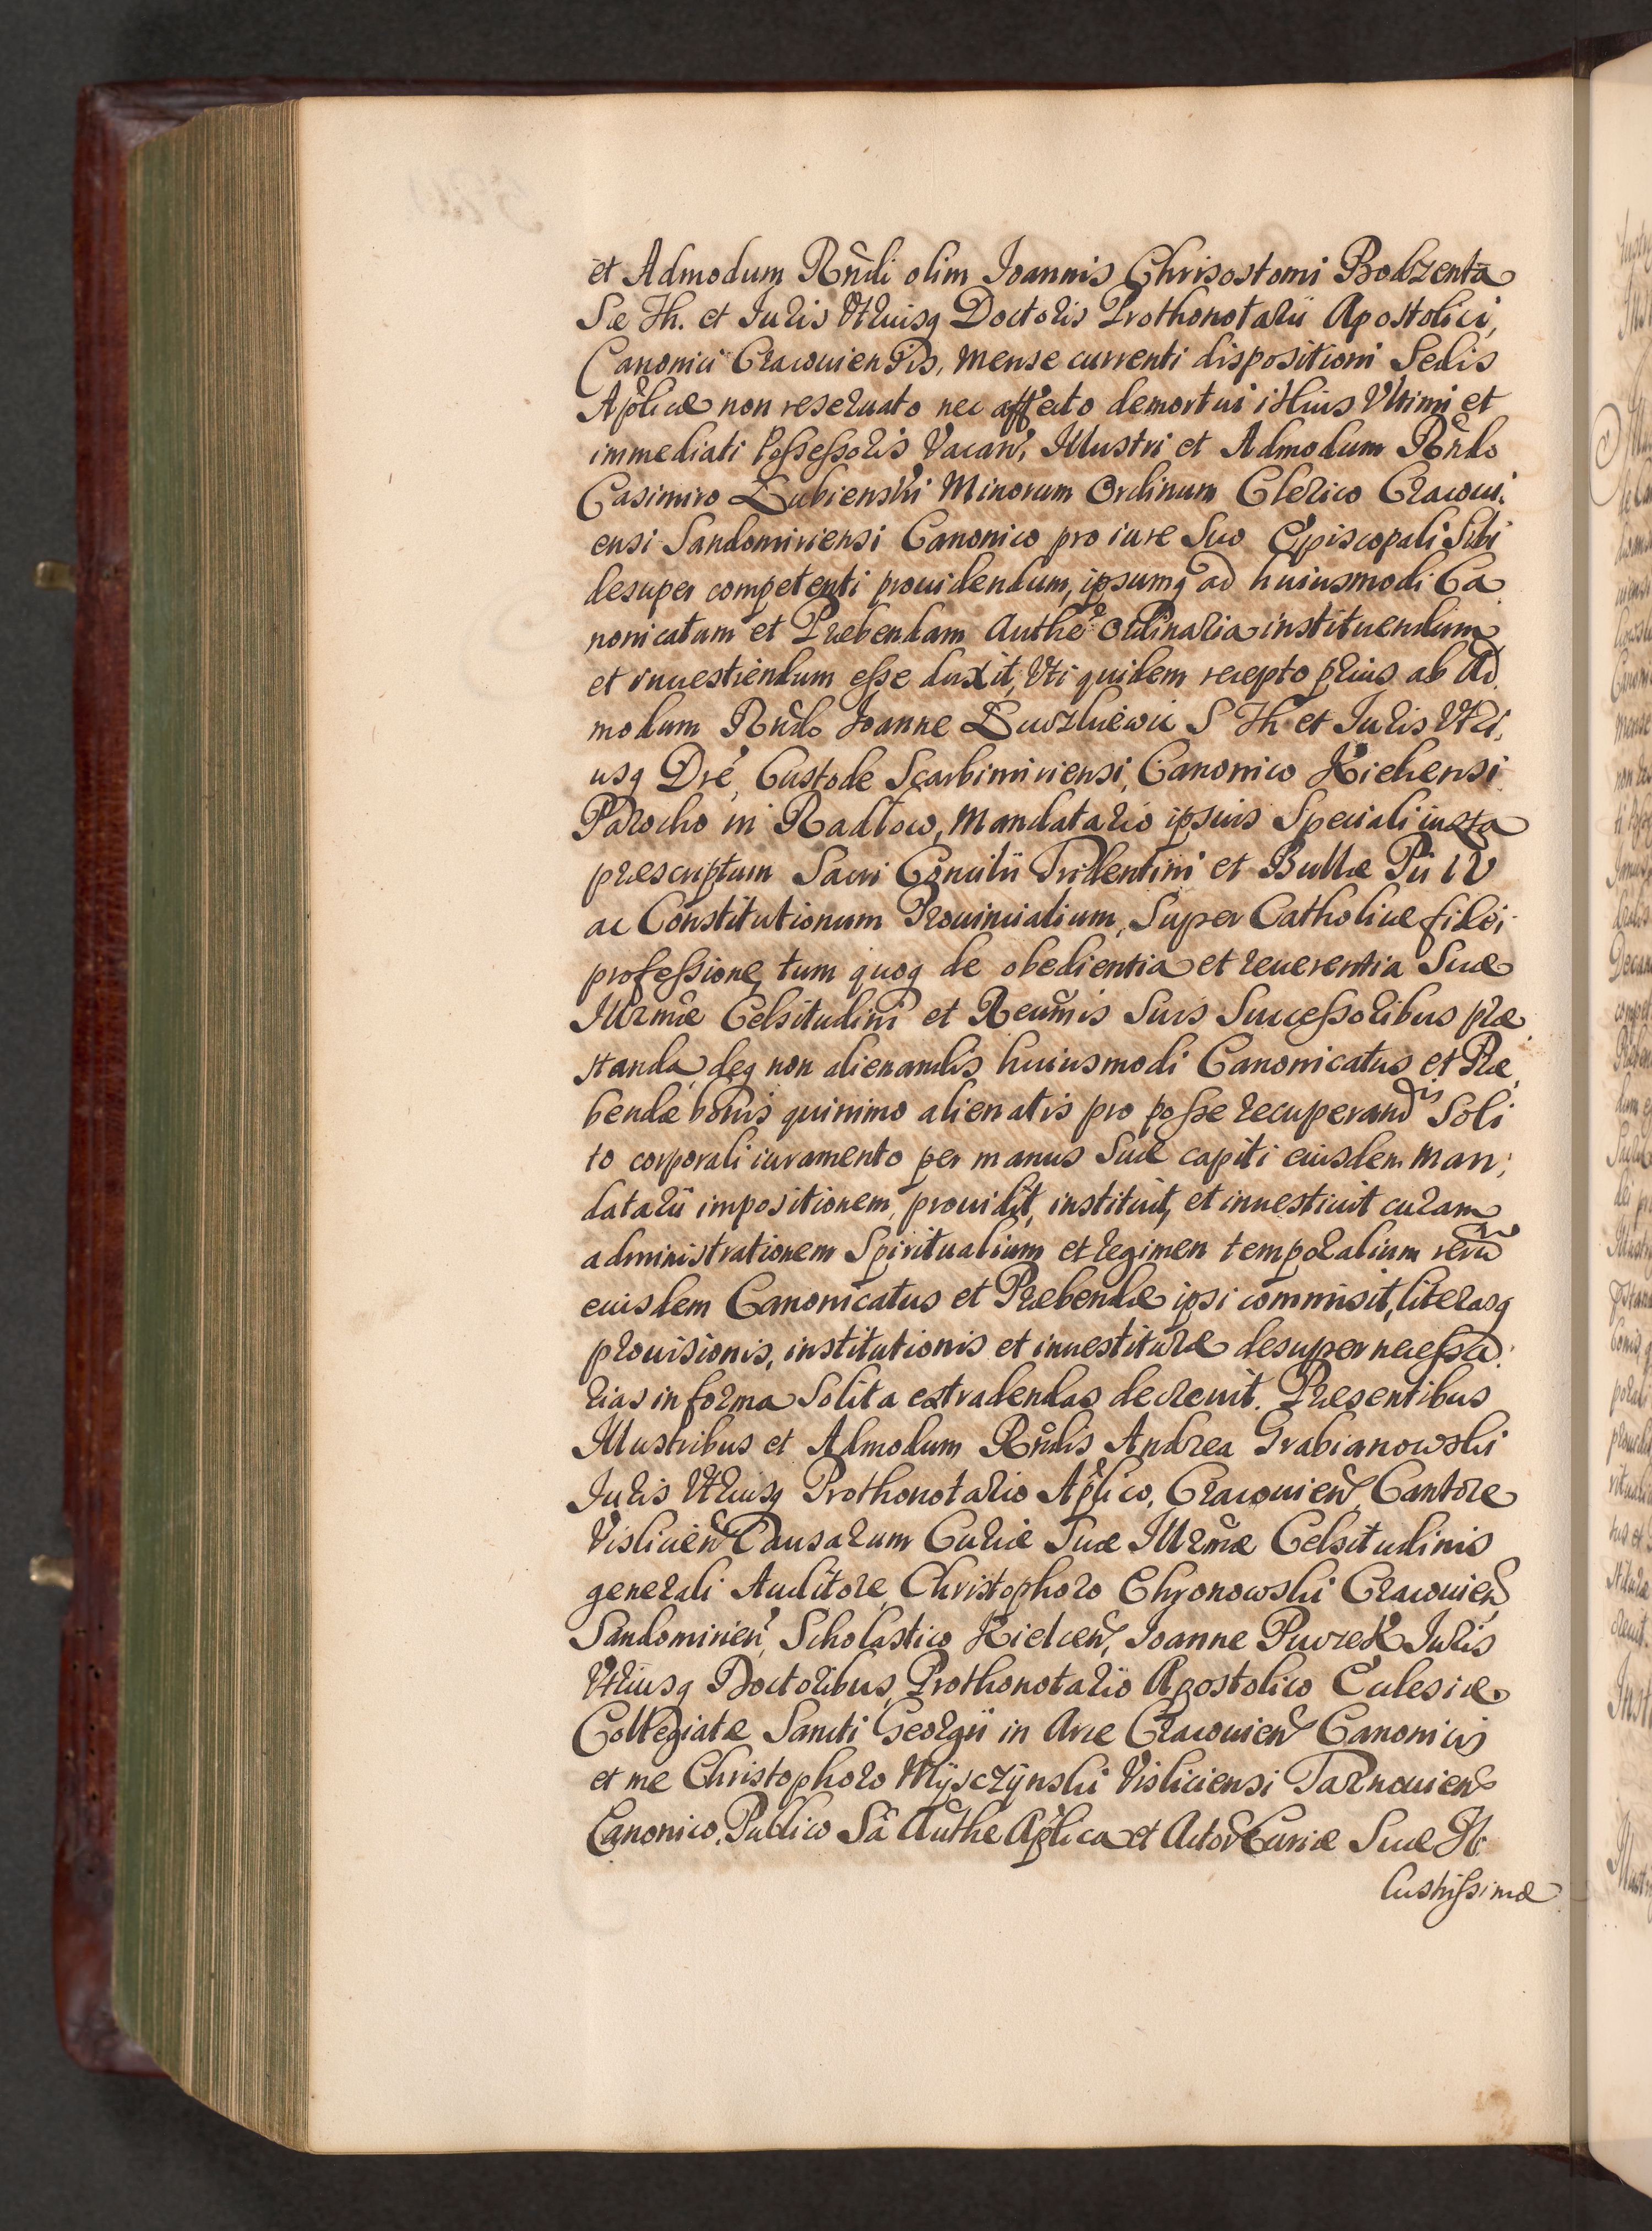 et Admodum Rńdi olim Joannis Chrisostomi Bodzenta
Sæ Th. et Juris Vtriusq Doctoris Prothonotarÿ Apostolici,
Canonici Cracouiensis, mense currenti dispositioni Sedis
Aplicæ non reseruato nec affecto demortui illius Vltimi et
immediati Possessoris Vacan, Illustri et Admodum Rńdo
Casimiro Łubienski Minorum Ordinum Clerico Cracoui:
ensi Sandomiriensi Canonico pro iure Suo Episcopali Sibi
desuper competenti prouidendum, ipsumq ad huiusmodi Ca
nonicatum et Præbendam Authe Ordinaria instituendum
et inuestiendum esse duxit, Vti quidem recepto prius ab Ad
modum Rńdo Joanne S Th et Juris Vtri,
usq Dre, Custode Scarbimiriensi, Canonico Kielcensi
Parocho in Radłow, Mandatario ipsius Speciali iuxta
præscriptum Sacri Concilii Tridentini et Bullæ Pii IV
ac Constitutionum Prouincialium, Super Catholicæ fidei
professione, tum quoq de obedientia et reuerentia Suæ
Illrmæ Celsitudini et Reumis Suis Successoribus præ
standa, deq non alienandis huiusmodi Canonicatus et Præ,
bendæ bonis quinimo alienatis pro posse recuperandis Soli
to corporali iuramento per manus Suæ capiti eiusdem Man;
datarii impositionem, prouidit, instituit, et inuestiuit curam
administrationem Spiritualium et regimen temporalium
eiusdem Canonicatus et Præbendæ ipsi commisit, literasq
prouisionis, institutionis et inuestituræ desuper necessa:
rias in forma Solita extradendas decreuit. Præsentibus
Illustribus et Admodum Rńdis Andrea Grabianowski
Juris Vtriusq Prothonotario Aplico, Cracouien, Cantore
Vislicien Causarum Curiæ Suæ Illrmæ Celsitudinis
generali Auditore, Christophoro Chronowski Cracouien,
Sandomirien, Scholastico Kielcen, Joanne Puczek Juris
Vtriusq Doctoribus, Prothonotario Apostolico Eclesiæ
Collegiatæ Sancti Georgii in Arce Cracouien Canonicis
et me Christophoro Myszczÿnski Visliciensi Tarnouien
Canonico, Publico Sa Authe Aplica et Actor Curiæ Suæ Il
lustrissimæ